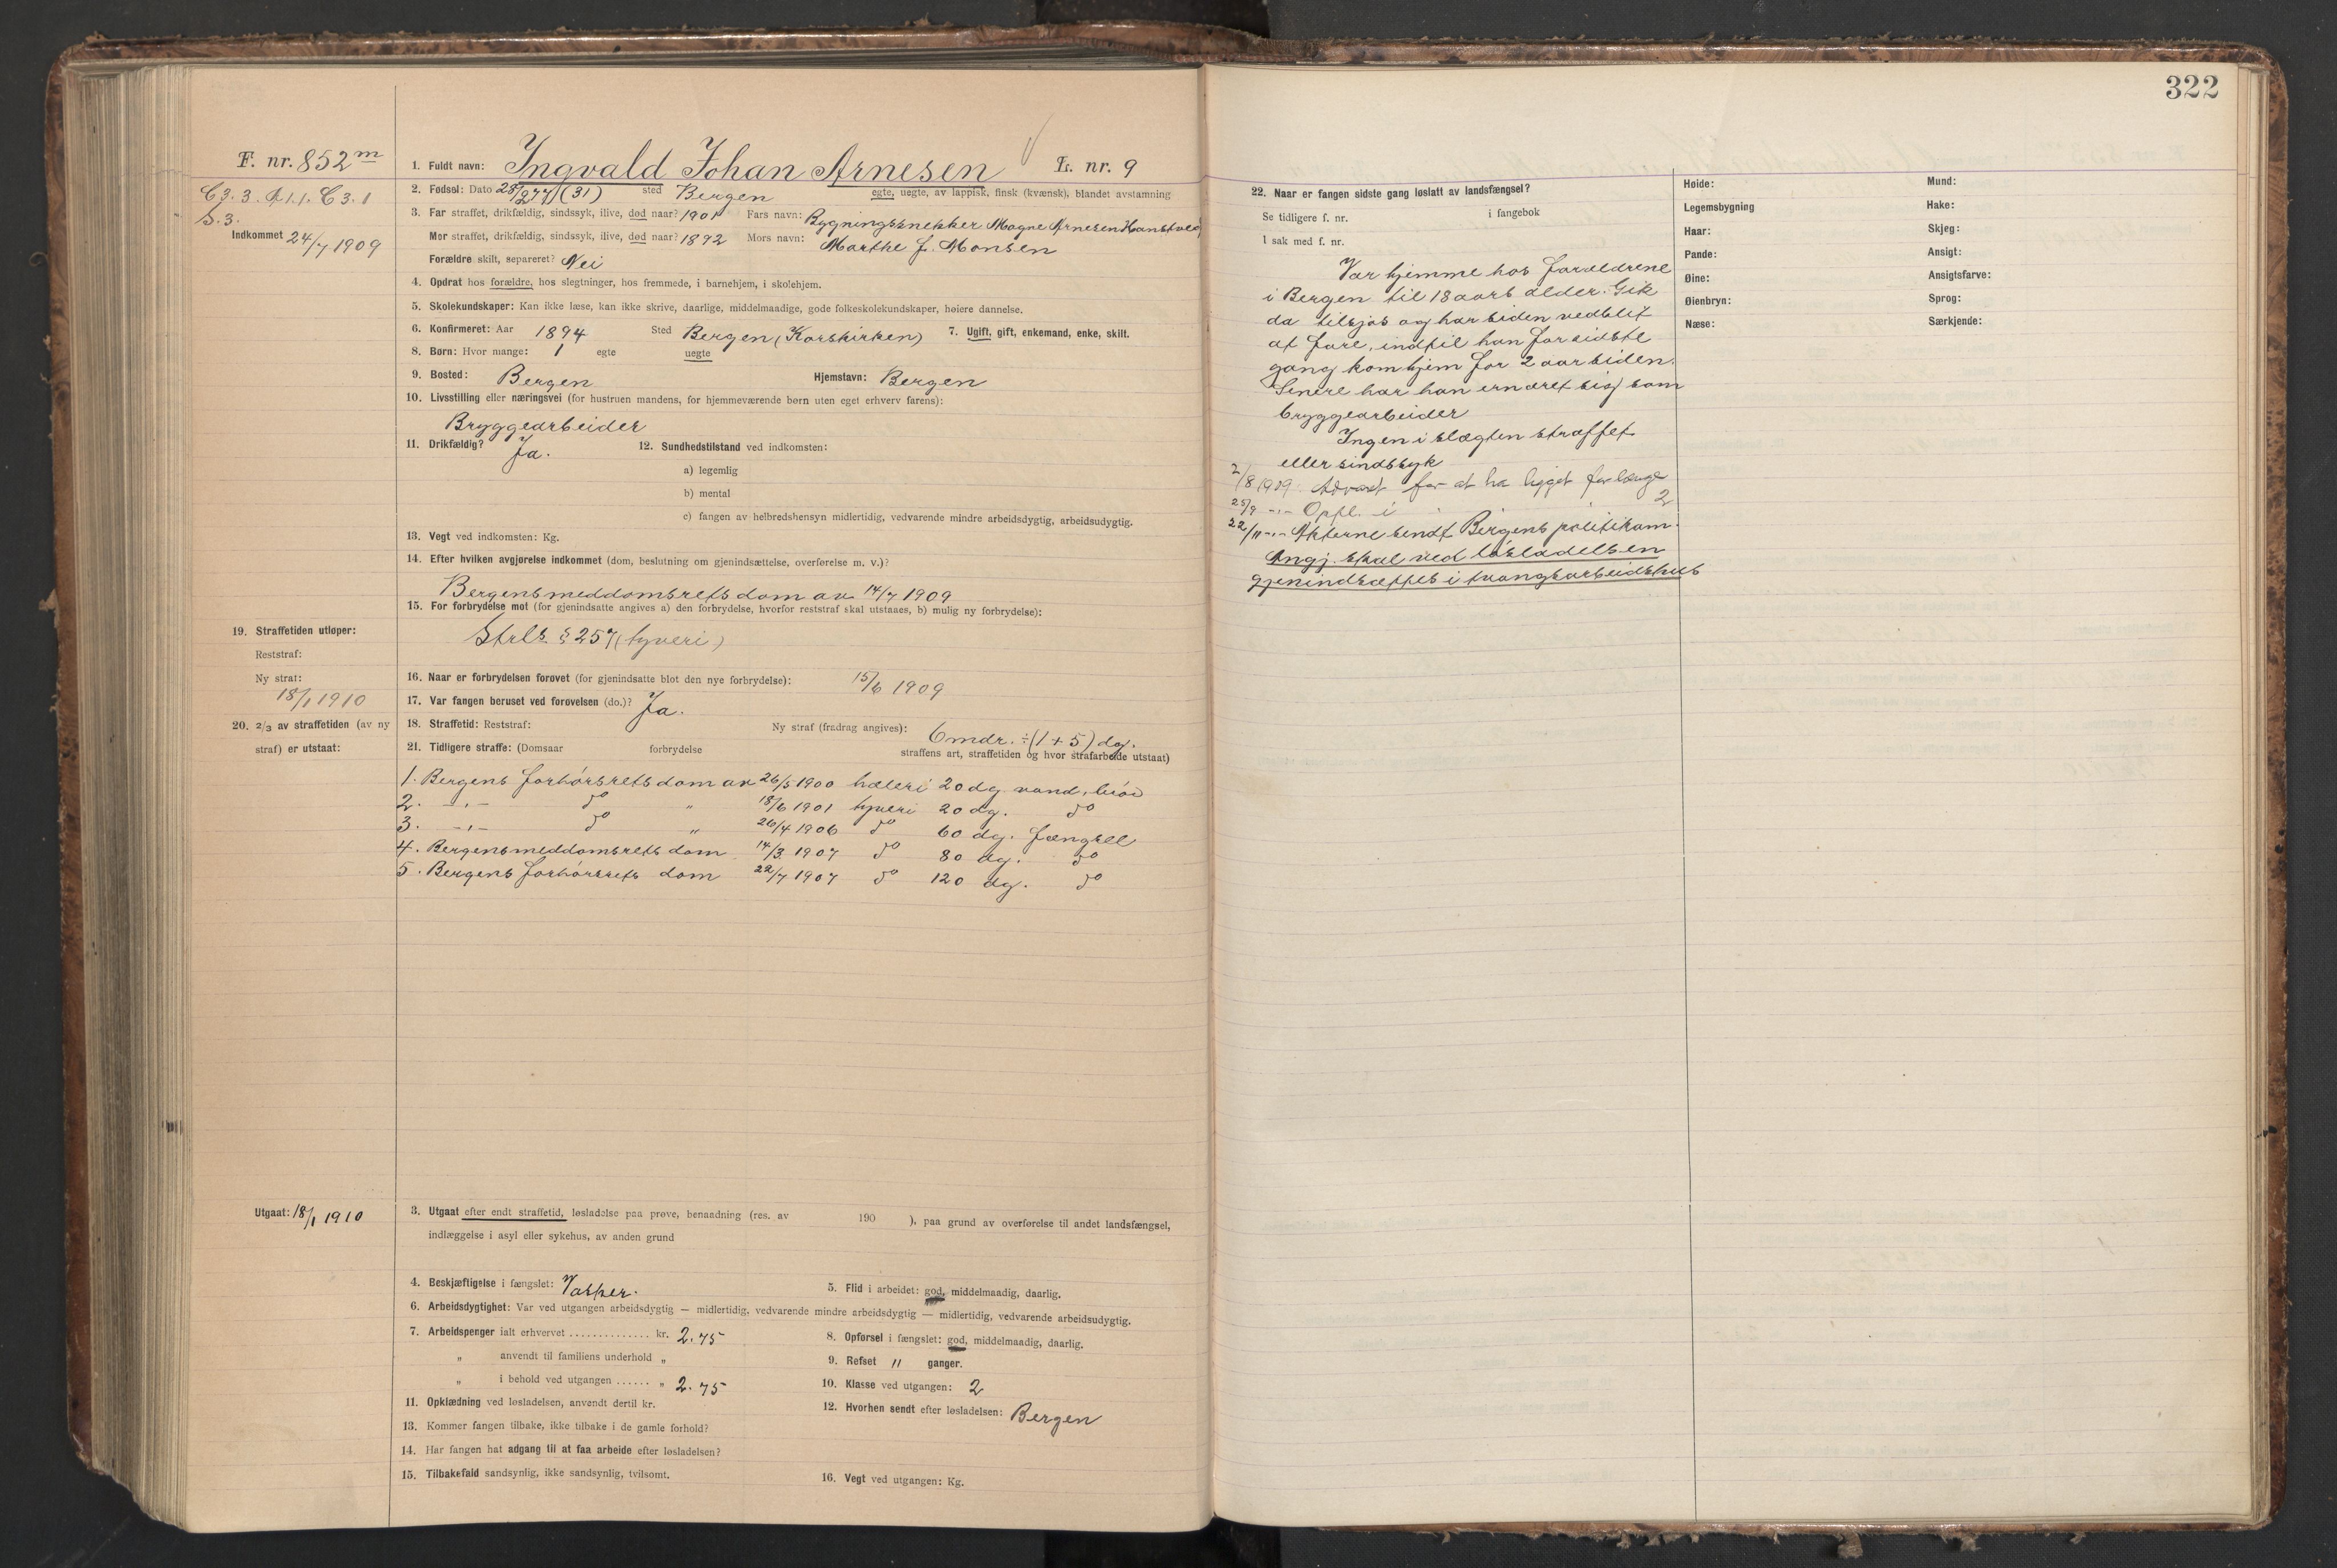 322
F. nr. 852 m
1. Fuldt navn: Ingvald Johan Arnesen L. nr. 9
C 3. 3. A 1.1. C 3. 1
S. 3.
Indkommet 24/7 1909
2. Fødsel: Dato 28/2 77 (31) sted Bergen egte, uegte, av lappisk, finsk (kvænsk), blandet avstamning
3. Far straffet, drikfældig, sindssyk, ilive, død naar? 1901 Fars navn: Bygningssnekker Magne Arnesen Hanstved
Mor straffet, drikfældig, sindssyk, ilive, død naar? 1892 Mors navn: Marthe J. Monsen
Forældre skilt, separeret? Nei
4. Opdrat hos forældre, hos slegtninger, hos fremmede, i barnehjem, i skolehjem.
5. Skolekundskaper: Kan ikke læse, kan ikke skrive, daarlige, middelmaadige, gode folkeskolekundskaper, høiere dannelse.
6. Konfirmeret: Aar 1894 Sted Bergen (Korskirken) 7. Ugift, gift, enkemand, enke, skilt.
8. Børn: Hvor mange: 1 egte uegte
9. Bosted: Bergen Hjemstavn: Bergen
10. Livsstilling eller næringsvei (for hustruen mandens, for hjemmeværende børn uten eget erhverv farens):
Bryggearbeider
11. Drikfældig? Ja. 12. Sundhedstilstand ved indkomsten:
a) legemlig
b) mental
c) fangen av helbredshensyn midlertidig, vedvarende mindre arbeidsdygtig, arbeidsudygtig.
13. Vegt ved indkomsten: Kg.
14. Efter hvilken avgjørelse indkommet (dom, beslutning om gjenindsættelse, overførelse m. v.)?
Bergens meddomsrets dom av 14/7 1909
15. For forbrydelse mot (for gjenindsatte angives a) den forbrydelse, hvorfor reststraf skal utstaaes, b) mulig ny forbrydelse):
Strls § 257 (tyveri)
19. Straffetiden utløper:
Reststraf:
Ny straf:
18/1 1910
20. 2/3 av straffetiden (av ny
straf) er utstaat:
16. Naar er forbrydelsen forøvet (for gjenindsatte blot den nye forbrydelse): 15/6 1909
17. Var fangen beruset ved forøvelsen (do.)? Ja.
18. Straffetid: Reststraf: Ny straf (fradrag angives): 6 mdr. ÷ (1 + 5) dg.
21. Tidligere straffe: (Domsaar forbrydelse straffens art, straffetiden og hvor strafarbeide utstaat)
1. Bergens forhørsrets dom av 26/5 1900 hæleri 20 dg vand, brød
2. -"- do " 18/6 1901 tyveri 20 dg. do
3. -"- do " 26/4 1906 do 60 dg. fængsel
4. Bergens meddomsrets dom 14/3 1907 do 80 dg. do
5. Bergens forhørsrets dom 22/7 1907 do 120 dg. do
Utgaat: 18/1 1910
3. Utgaat efter endt straffetid, løsladelse paa prøve, benaadning (res. av 190 ), paa grund av overførelse til andet landsfængsel,
indlæggelse i asyl eller sykehus, av anden grund
4. Beskjæftigelse i fængslet: Vasker. 5. Flid i arbeidet: god, middelmaadig, daarlig.
6. Arbeidsdygtighet: Var ved utgangen arbeidsdygtig — midlertidig, vedvarende mindre arbeidsdygtig — midlertidig, vedvarende arbeidsudygtig.
7. Arbeidspenger ialt erhvervet .............. kr. 2.75 8. Opførsel i fængslet: god, middelmaadig, daarlig.
" anvendt til familiens underhold " 9. Refset " ganger.
" i behold ved utgangen ...... " 2.75 10. Klasse ved utgangen: 2
11. Opklædning ved løsladelsen, anvendt dertil kr. 12. Hvorhen sendt efter løsladelsen: Bergen
13. Kommer fangen tilbake, ikke tilbake i de gamle forhold?
14. Har fangen hat adgang til at faa arbeide efter løsladelsen?
15. Tilbakefald sandsynlig, ikke sandsynlig, tvilsomt. 16. Vegt ved utgangen: Kg.
22. Naar er fangen sidste gang løslatt av landsfængsel?
Se tidligere f. nr. i fangebok
I sak med f. nr.
Var hjemme hos forældrene
i Bergen til 18 aars alder. Gik
da tilsjøs og har siden vedblit
at fare, indtil han for sidste
gang kom hjem for 2 aar siden.
Senere har han ernæret sig som
bryggearbeider
Ingen i slægten straffet
eller sindssyk
2/8 1909. Advart for at ha ligget for længe
25/9 -"- Opfl. i 2
22/11 -"- Akterne sendt Bergens politikam.
Angj. skal ved løsladelsen
gjenindsættes i tvangsarbeidshus
Høide: Mund:
Legemsbygning Hake:
Haar: Skjeg:
Pande: Ansigt:
Øine: Ansigtsfarve:
Øienbryn: Sprog:
Næse: Særkjende: